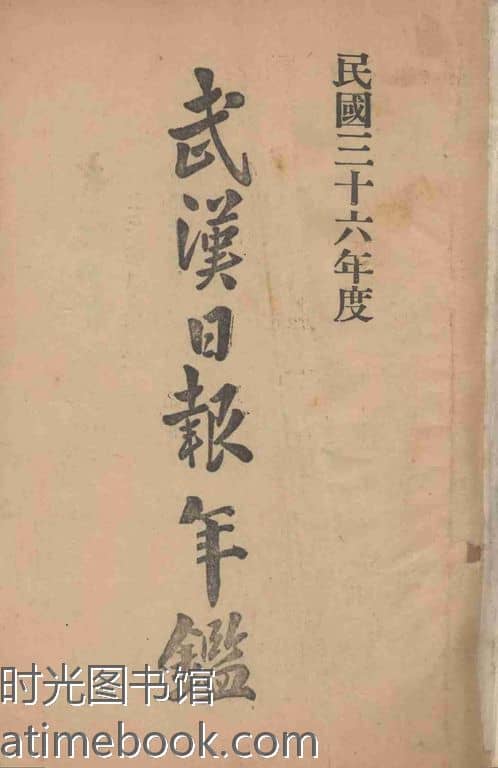 民國三十六年度
武漢日報年鑑
时光图书馆
atimebook.com